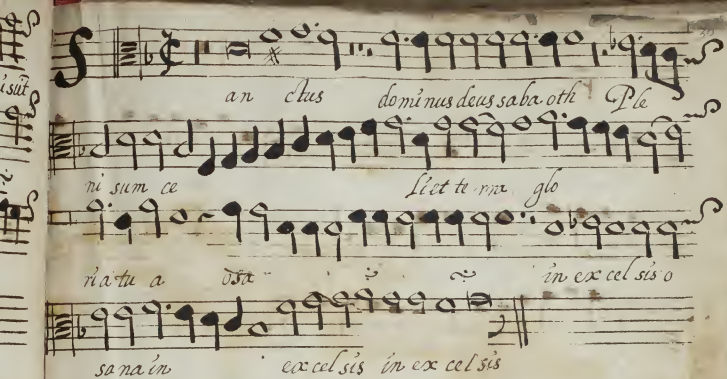 S
an ctus dominus deus saba oth Ple
ni sum ce li et te rra glo
ria tu a osa in ex cel sis o
sa na in ex cel sis in ex cel sis